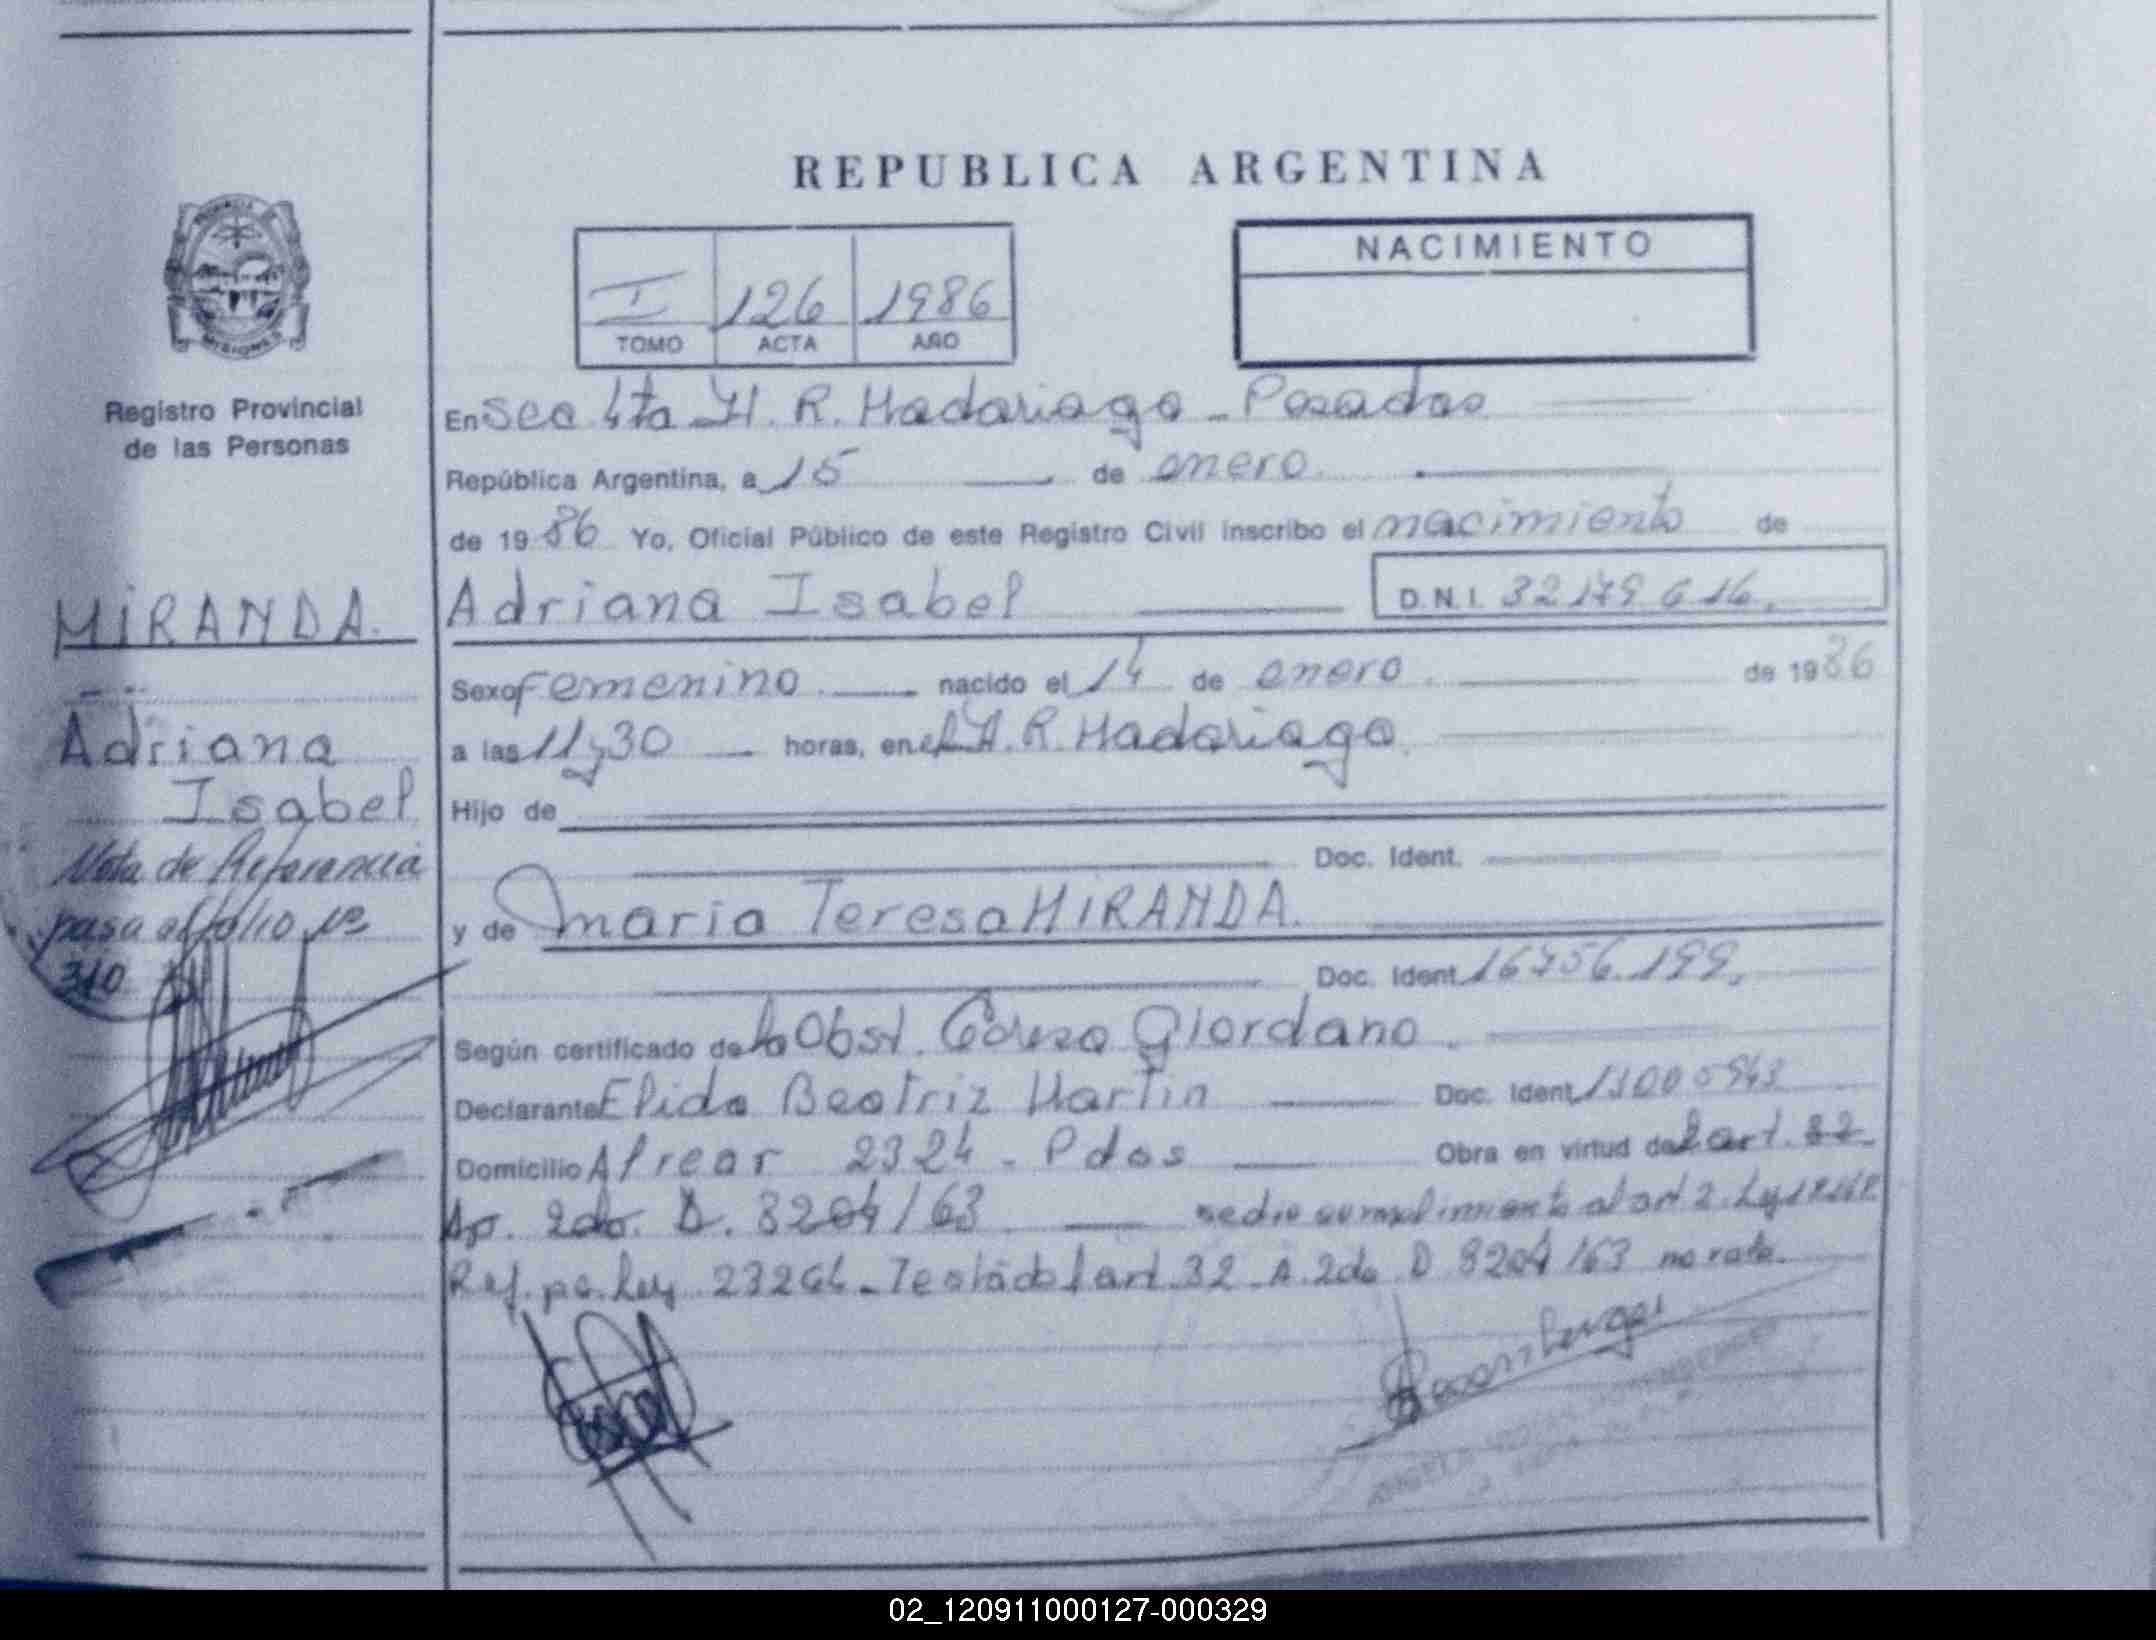 REPUBLICA ARGENTINA
PROVINCIA DE
MISIONES
Registro Provincial
de las Personas
I 126 1986
TOMO ACTA AÑO
NACIMIENTO
En Sec 4ta H. R. Madariaga - Posadas
República Argentina, a 15 de enero
de 19 86 Yo, Oficial Público de este Registro Civil inscribo el nacimiento de
Adriana Isabel D.N.I. 32179616.
Sexo Femenino nacido el 14 de enero de 1986
a las 11y30 horas, en el H. R. Madariaga.
Hijo de
Doc. Ident.
y de Maria Teresa MIRANDA.
Doc. Ident. 16756.199.
Según certificado de la Obst. Giordano.
Declarante Elida Beatriz Martin Doc. Ident.
Domicilio Alvear 2324 - Pdas Obra en virtud del art. 32
Ap. 2do. D. 8204/63 medio cumplimiento al art 2. Ley
Ref. po. Ley 23264 - Testado art. 32 - A. 2do D 8204/63 no vale.
MIRANDA.
Adriana
Isabel
Nota de Referencia
pasa al folio Nº
310
02_120911000127-000329